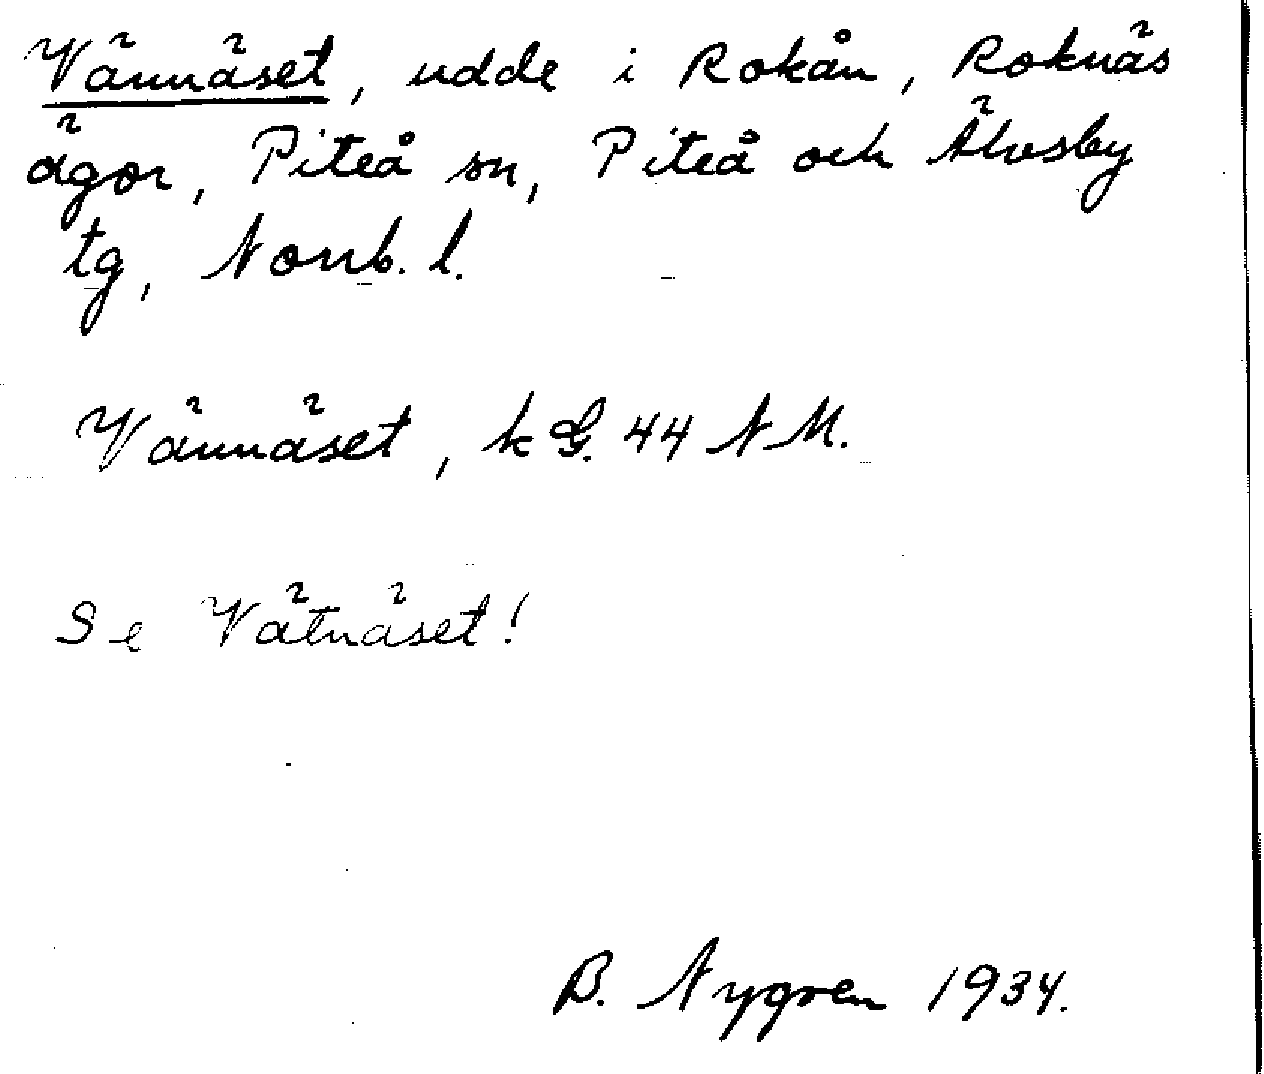 Vännäset, udde i Rokån, Roknäs
ägor, Piteå sn, Piteå och Älvsby
tg, Norrb. l.
Vännäset, kG. 44 NM.
Se Vätnäset!
B. Nygren 1934.